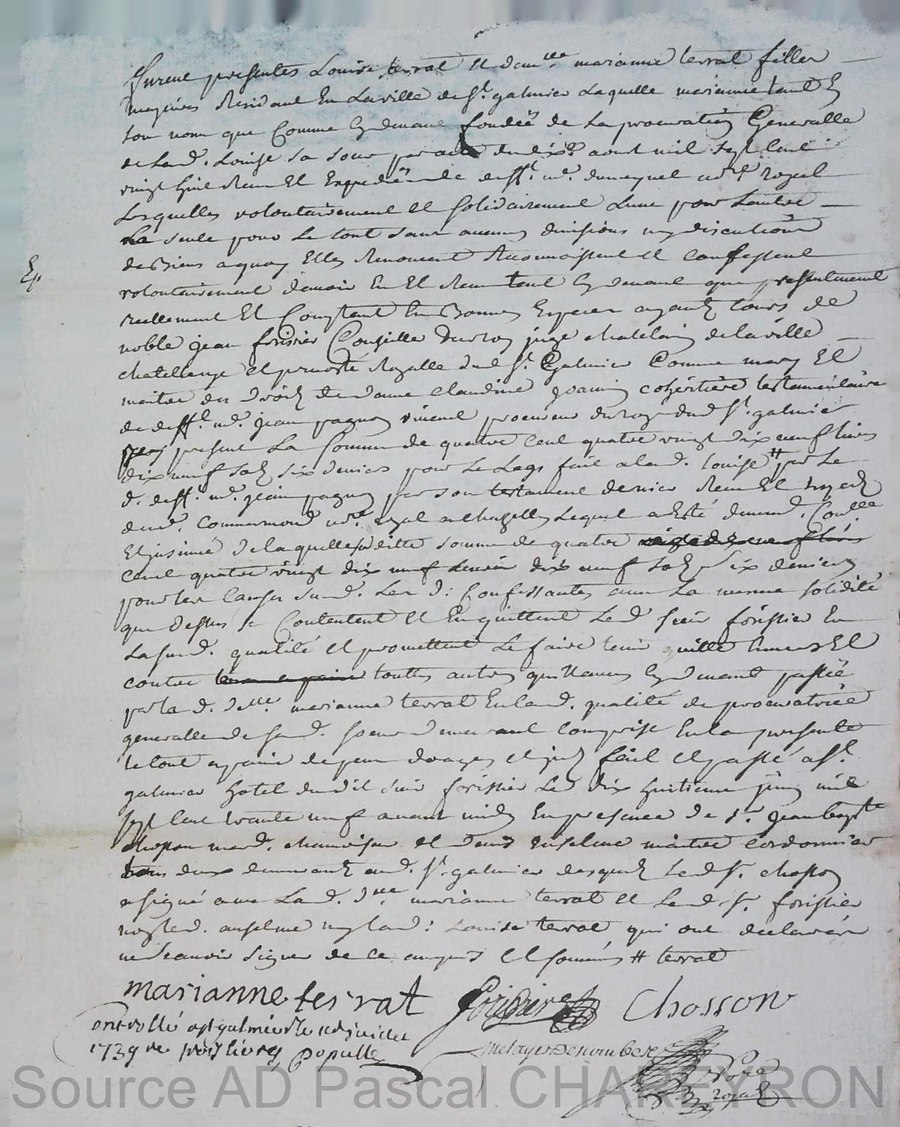 Furent presentes Louise terrat et dem.lle marianne terrat filles
majeures Residant En La ville de St. galmier Laquelle marianne tant En
son nom que Comme Cy devant fondée de La procuration Generalle
de Lad. Louise sa sœur par acte du dix aoust mil sept Cent
vingt huit Receu Et Expedié de deff.t me. royal
Lesquelles volontairement et solidairement L'une pour Lautre
La seule pour Le tout sans aucune divisions ny discutions
de Biens a quoy Elles Renoncent Reconnoissent et confessent
volontairement d'avoir Eu Et Receu tant Cy devant que presentement
reellement Et Comptant En Bonnes Especes ayant Cours de
noble jean forissier Conseiller du Roy juge chatelain de la ville
chatellenye et prevosté Royalle dud St. Galmier Comme mary Et
maitre des droits de dame claudine cohéritiere testamentaire
de deff.t me. jean pagnon vivant procureur du roy dud St. galmier
present La Somme de quatre Cent quatre vingt dix neuf livres
dix neuf sols six deniers pour Le Legs fait a lad. Louise # par Le
d. deff.t me. jean pagnon par son testament dernier Receu Et
dud. Commarmond no.re royal a chazelles Lequel a Esté Conllé
Et insinué de laquelle ditte somme de quatre
Cent quatre vingt dix neuf Livres dix neuf sols six deniers
pour les Causes susd. Les d. Confessantes avec La mesme solidité
que dessus se Contentent et En quittent Led Sieur forissier En
La susd. qualité et promettent Le faire tenir quitte Envers Et
contre touttes autres quittances Cy devant passée
par la d. delle marianne terrat En lad. qualité de procuratrice
generalle de sad. Soeur demeurant Comprise En la presente
Le tout a peine de tous dépens fait et passé a St.
galmier hotel dudit Sieur forissier Le dix huitieme juin mil
sept Cent trente neuf avant midy En presence de Sr. jean bapt.te
Chosson mard. et anselme maitre cordonnier
tous deux demeurants aud. St. galmier desquels Led Sr. chosson
a signé avec La d. d.lle marianne terrat et Led Sr. forissier
non led. anselme ny lad: Louise terrat qui ont declarés
ne scavoir signer de ce enquis et sommés # terrat
Ep
marianne terrat Chosson
Controllé a St galmier le juillet
1739 Re trois livres
royal
Source AD Pascal CHAREYRON